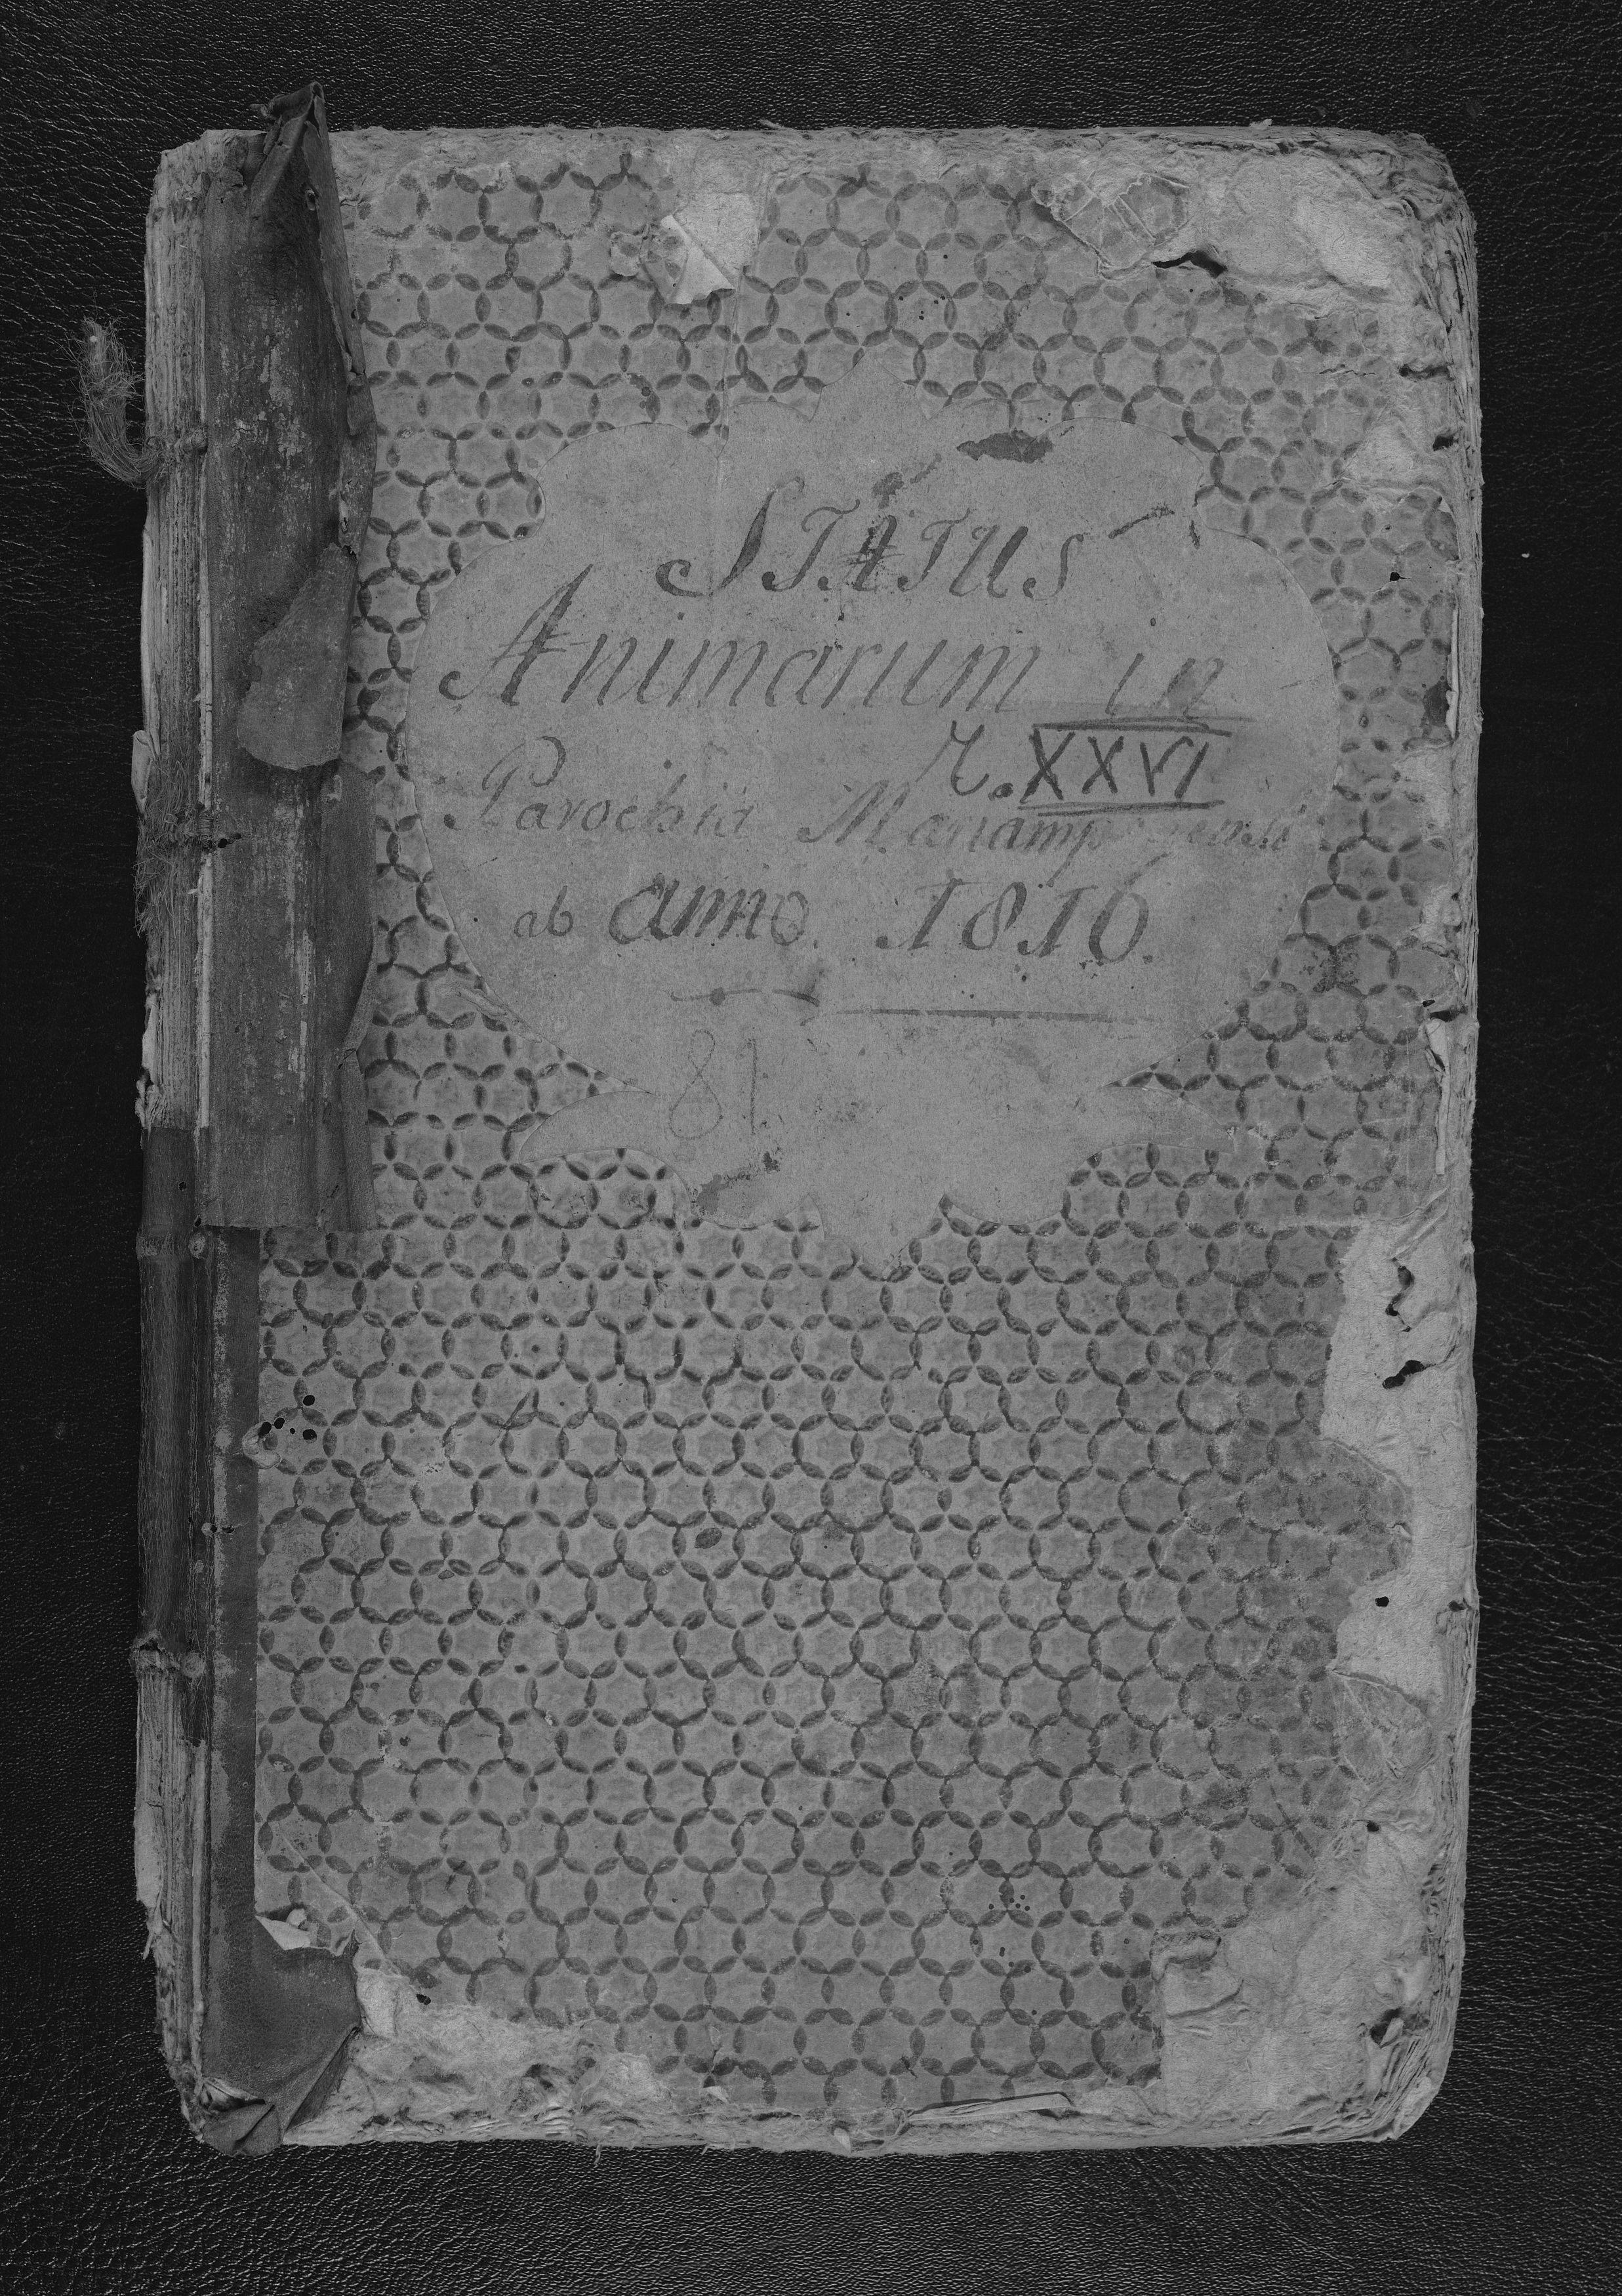 STATUS
Animarum in
R. XXVI
Parochia
ab anno. 1816.
81